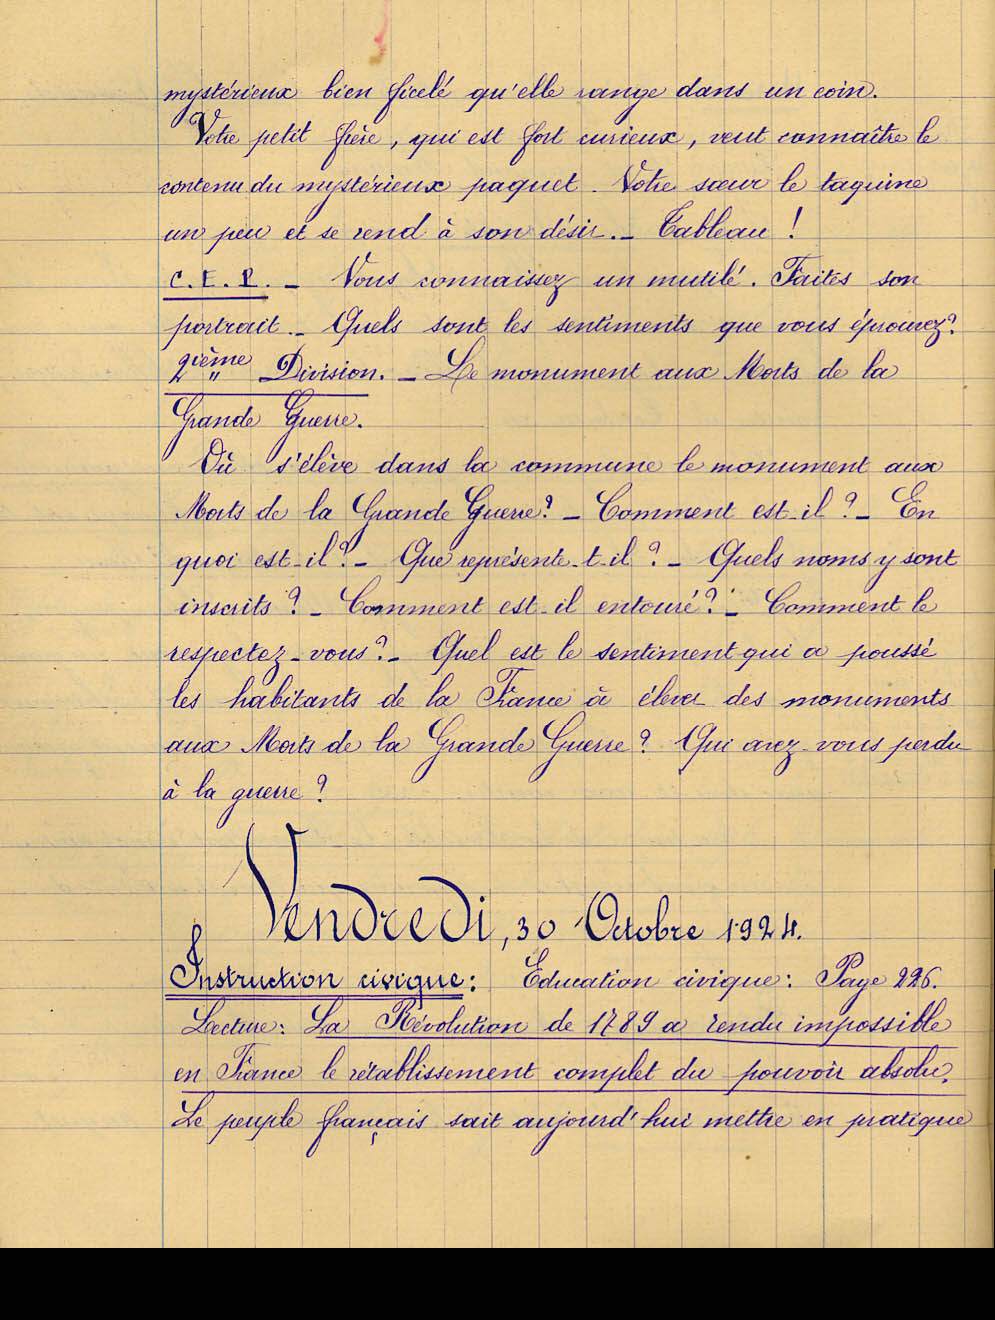 mystérieux bien ficelé qu'elle range dans un coin.
Votre petit frère, qui est fort curieux, veut connaître le
contenu du mystérieux paquet. Votre sœur le taquine
un peu et se rend à son désir. _ Tableau !
C.E.P. _ Vous connaissez un mutilé. Faites son
portrait. _ Quels sont les sentiments que vous éprouvez?
2ième Division. _ Le monument aux Morts de la
Grande Guerre.
Où s'élève dans la commune le monument aux
Morts de la Grande Guerre? _ Comment est-il ? _ En
quoi est-il? _ Que représente-t-il ? _ Quels noms y sont
inscrits ? _ Comment est-il entouré? _ Comment le
respectez-vous? _ Quel est le sentiment qui a poussé
les habitants de la France à élever des monuments
aux Morts de la Grande Guerre ? Qui avez-vous perdu
à la guerre ?
Vendredi, 30 Octobre 1924.
Instruction civique: Education civique: Page 226.
Lecture: La Révolution de 1789 a rendu impossible
en France le rétablissement complet du pouvoir absolu.
Le peuple français sait aujourd'hui mettre en pratique